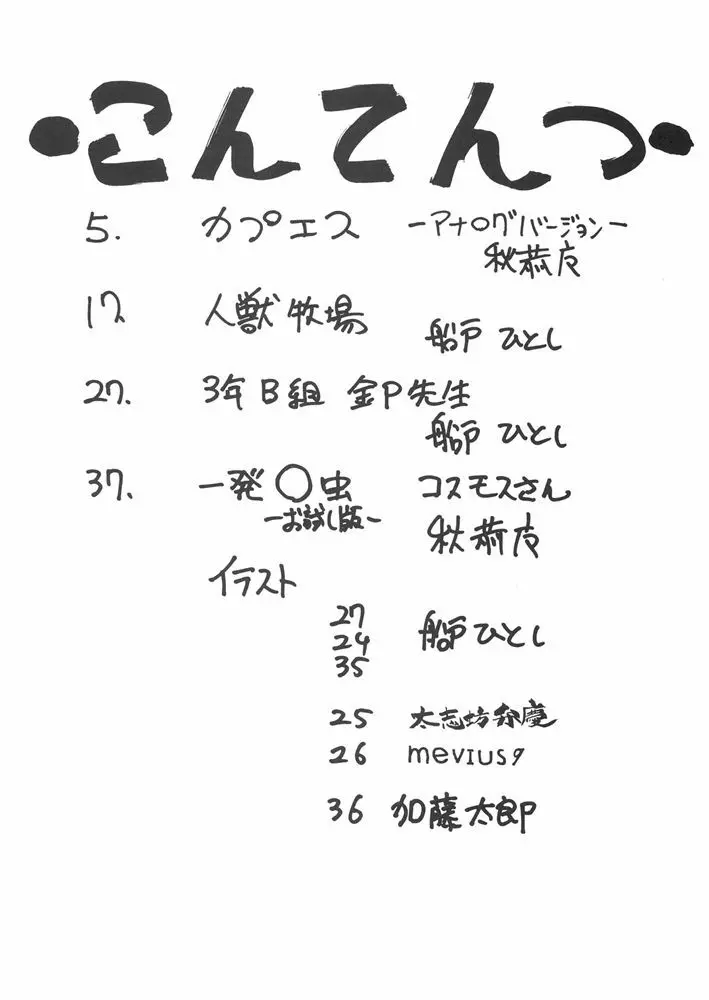 ・こんてんつ・
5. カプエス －アナログバージョン－
秋恭
17. 人獣牧場
船戸 ひとし
27. 3年B組 金P先生
船戸 ひとし
37. 一発〇虫 コスモスさん
－お試し版－
秋恭
イラスト
27
24 船戸ひとし
35
25 太志坊弁慶
26 mevius9
36 加藤太郎